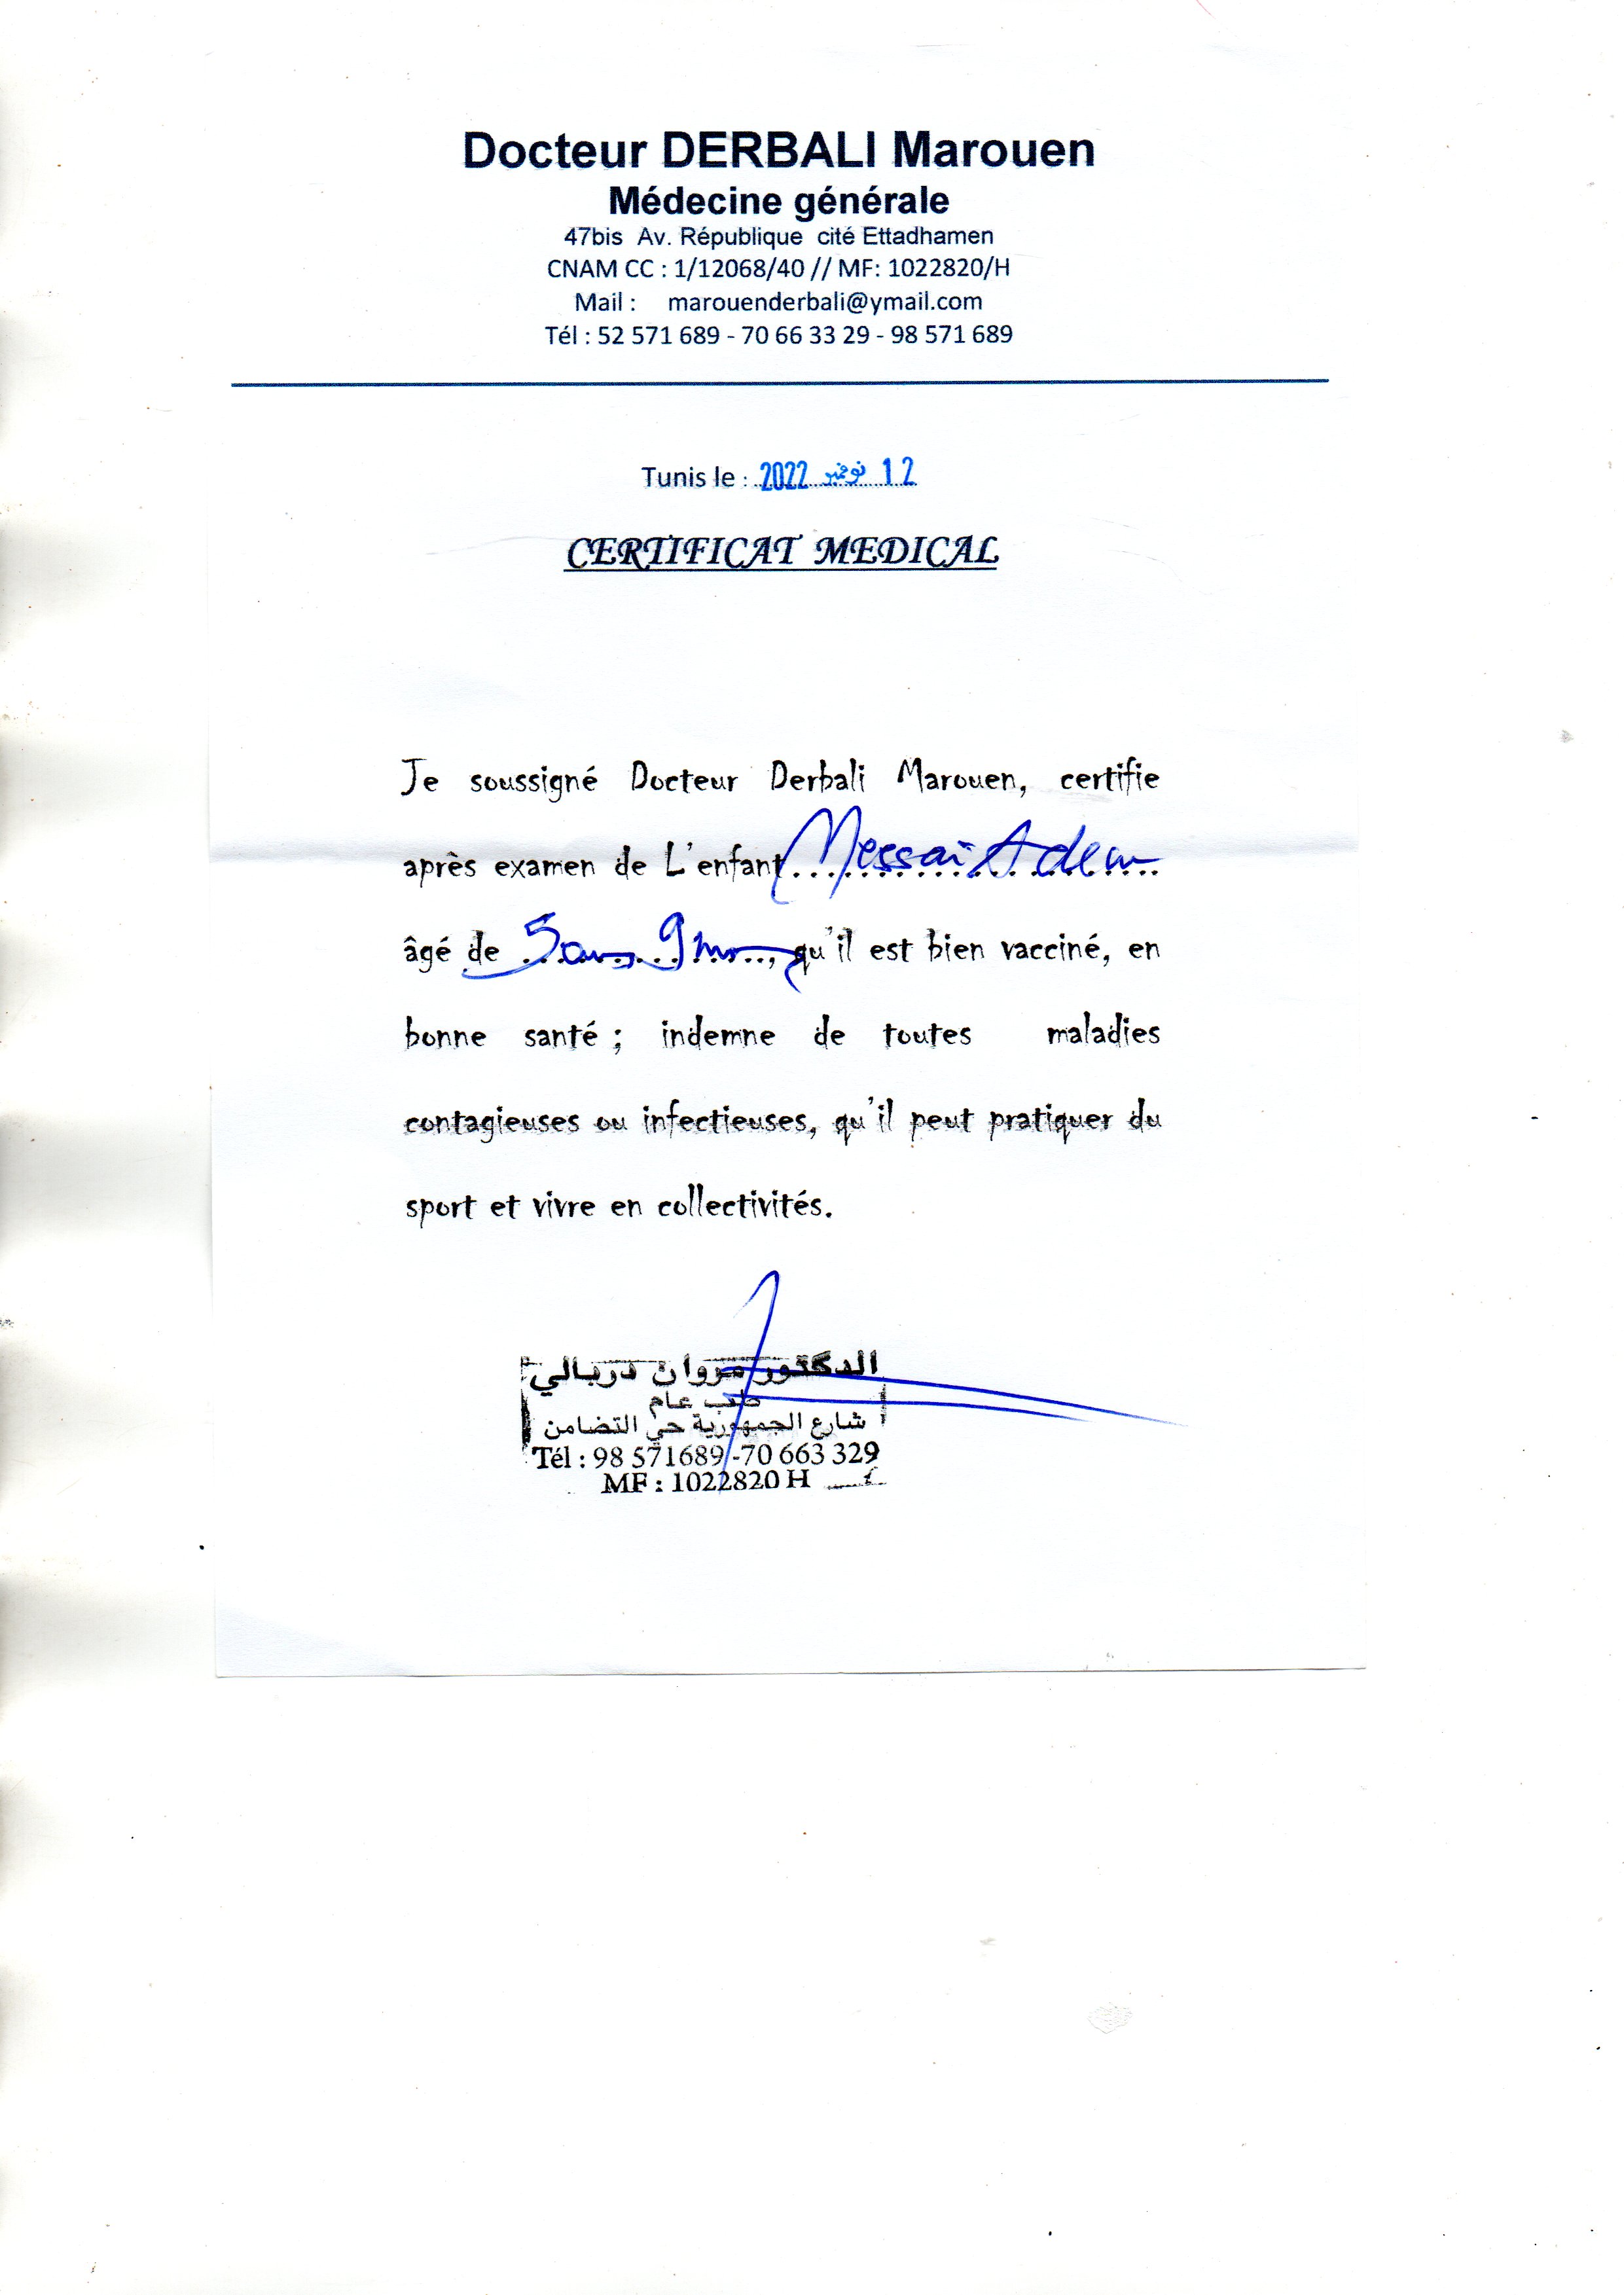 Docteur DERBALI Marouen
Médecine générale
47bis Av. République cité Ettadhamen
CNAM CC : 1/12068/40 // MF: 1022820/H
Mail : marouenderbali@ymail.com
Tél : 52 571 689 - 70 66 33 29 - 98 571 689
Tunis le : 2022 نوفمبر 12
CERTIFICAT MEDICAL
Je soussigné Docteur Derbali Marouen, certifie
après examen de L'enfant Messai Adem
âgé de 5 ans 9 , qu'il est bien vacciné, en
bonne santé ; indemne de toutes maladies
contagieuses ou infectieuses, qu'il peut pratiquer du
sport et vivre en collectivités.
الدكتور مروان دربالي
طب عام
شارع الجمهورية حي التضامن
Tél : 98 571689 - 70 663 329
MF : 1022820 H